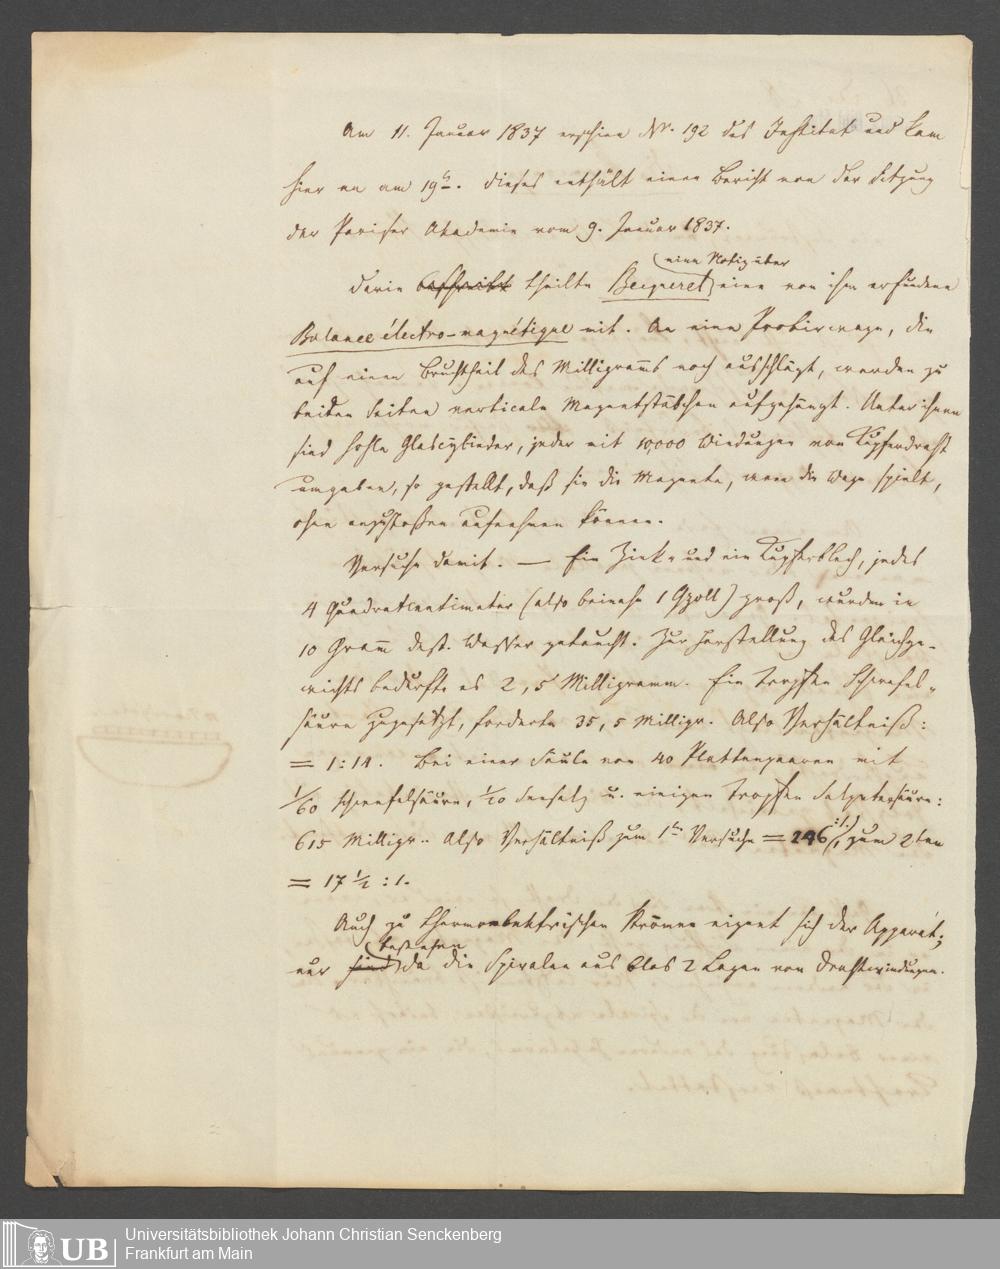 Am 11. Januar 1837 erschien Nr. 192 des Institut und kam
hier an am 19n. Dieses enthält einen Bericht von der Sitzung
der Pariser Akademie vom 9. Januar 1837.
eine Notiz über
Darin beschreibt theilte Becquerel eine von ihm erfundene
Balance électro-magnétique mit. An einer Probirwage, die
auf einen Bruchtheil des Milligramms noch ausschlägt, werden zu
beiden Seiten verticale Magnetstäbchen aufgehängt. Unter ihnen
sind hohle Glascylinder, jeder mit 10,000 Windungen von Kupferdraht
umgeben, so gestellt, daß sie die Magnete, wenn die Wage spielt,
ohne anzustoßen aufnehmen können.
Versuche damit. — Ein Zink- und ein Kupferblech, jedes
4 Quadratcentimeter (also beinahe 1 Qzoll) groß, wurden in
10 Gramm dest. Wasser getaucht. Zur Herstellung des Gleichge-
wichts bedurfte es 2,5 Milligramm. Ein Tropfen Schwefel-
säure zugesetzt, forderte 35,5 Milligr. Also Verhältniß:
= 1:14. Bei einer Säule von 40 Plattenpaaren mit
1/60 Schwefelsäure, 1/20 Seesalz u. einigen Tropfen Salpetersäure:
615 Milligr. Also Verhältniß zum 1ten Versuche = 246:1, zum 2ten
= 17 1/2 : 1.
Auch zu thermoelektrischen Strömen eignet sich der Apparat;
bestehen
nur sind da die Spiralen aus blos 2 Lagen von Drahtwindungen.
UB
Universitätsbibliothek Johann Christian Senckenberg
Frankfurt am Main